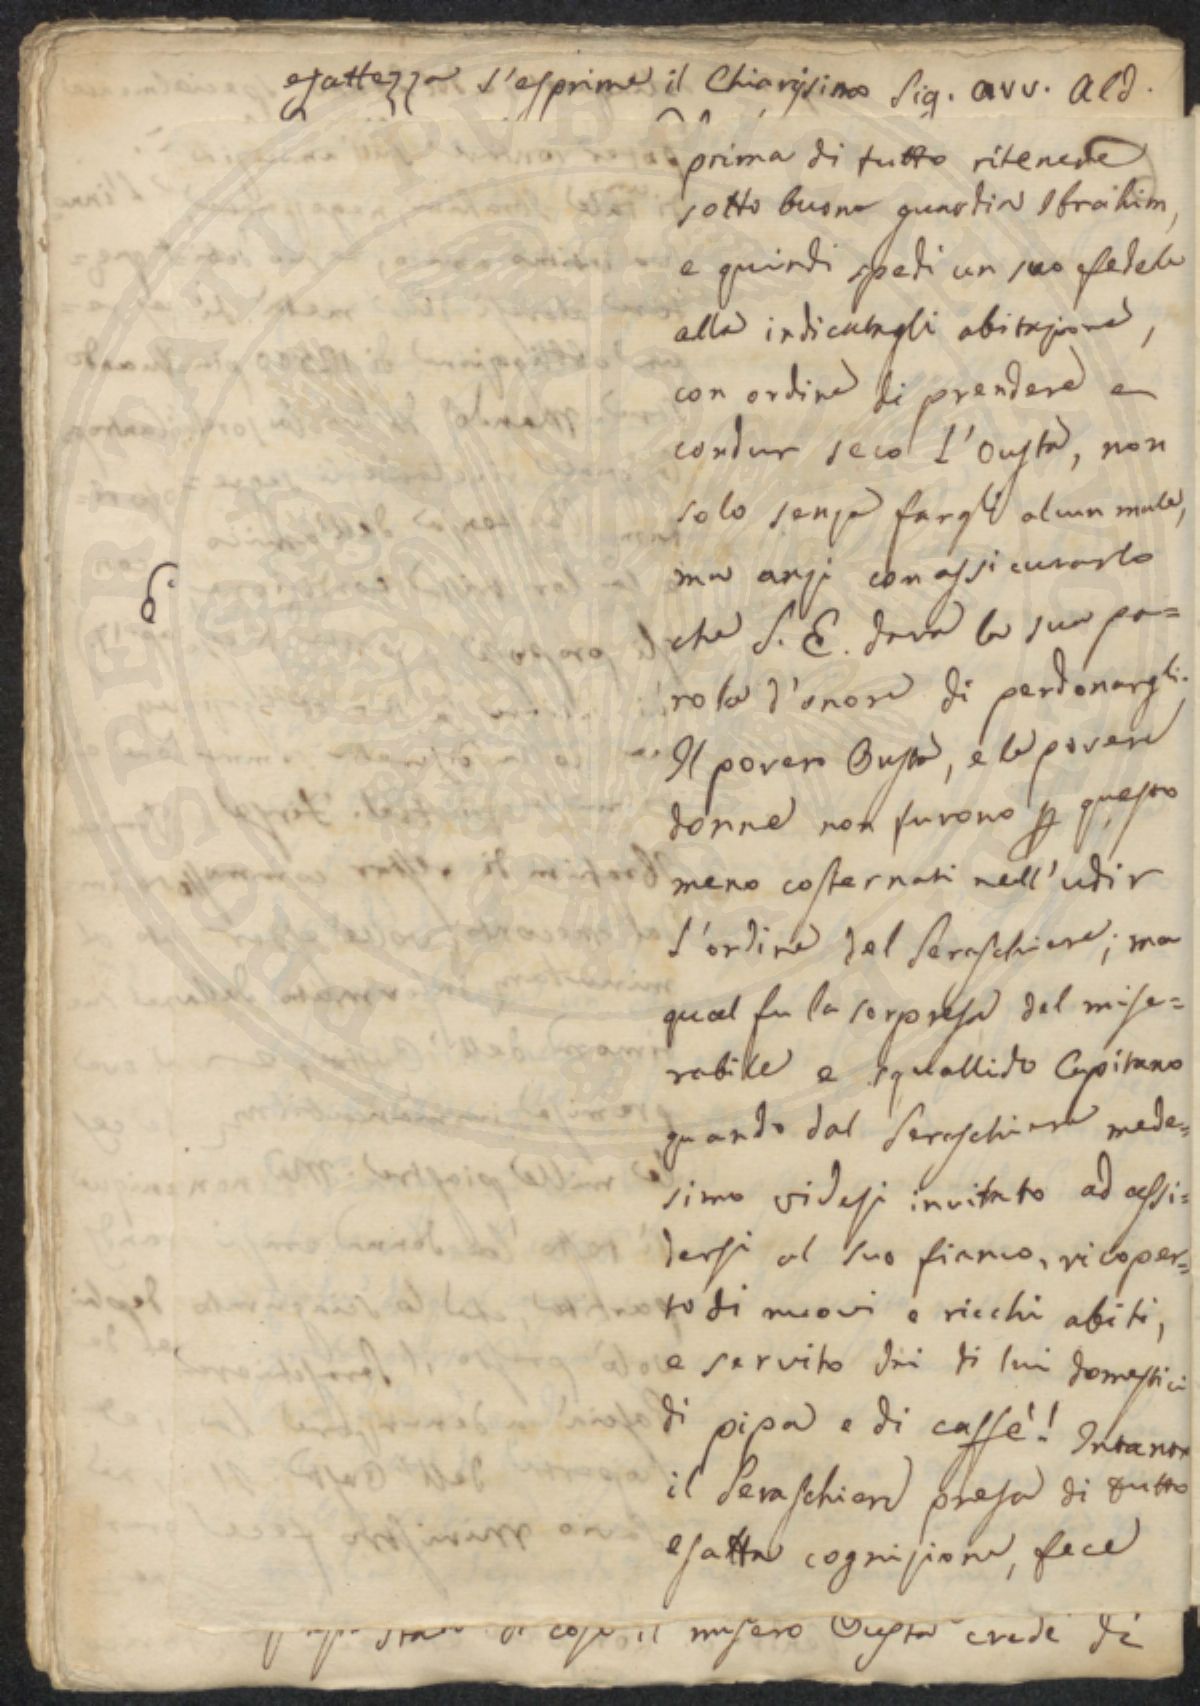 esattezza s'esprime il Chiarissimo Sig. avv. Ald.
prima di tutto ritenere
sotto buona guardia Ibrahim,
e quindi spedì un suo fedele
alla indicatagli abitazione,
con ordine di prendere e
condur seco l'Oustà, non
solo senza fargli alcun male,
ma anzi con assicurarlo
che S. E. dava la sua pa=
rola d'onore di perdonargli.
6.
Il povero Oustà, e le povere
donne non furono p questo
meno costernati nell'udir
l'ordine del Seraschiere; ma
qual fu la sorpresa del mise=
rabile e squallido Capitano
quando dal Seraschiere mede=
simo videsi invitato ad assi=
dersi al suo fianco, ricoper=
to di nuovi e ricchi abiti,
e servito dai di lui domestici
di pipa e di caffè! Intanto
il Seraschiere presa di tutto
esatta cognizione, fece
stato di cose il misero Oustà crede di